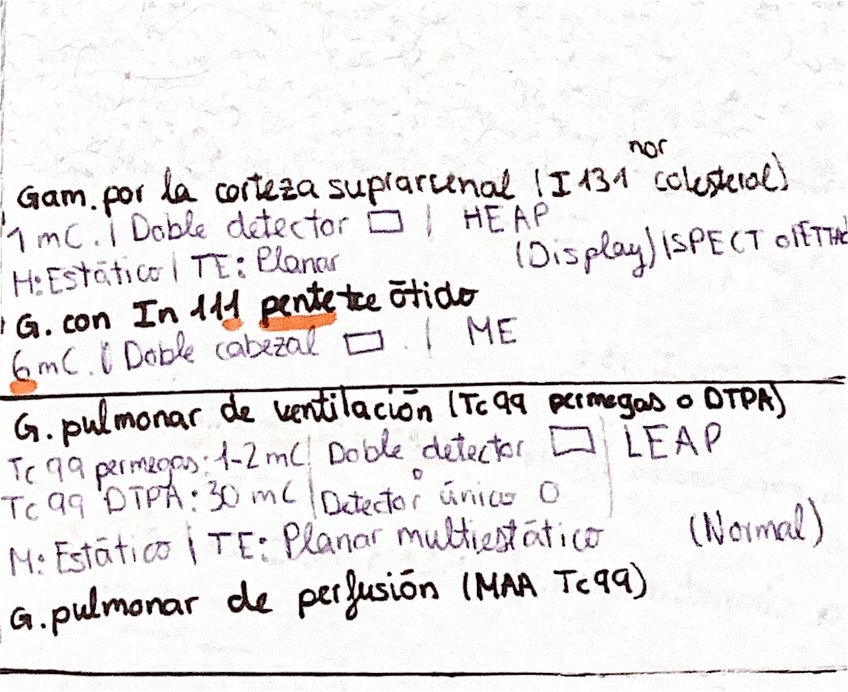 Gam. por la corteza suprarrenal (I 131 nor colesterol)
1 mC. | Doble detector ▭ | HEAP
H: Estático | TE: Planar (Display) | SPECT
G. con In 111 pentetre ótido
6 mC. | Doble cabezal ▭ . | ME
G. pulmonar de ventilación (Tc 99 permegas o DTPA)
Tc 99 permegas: 1-2 mC | Doble detector ▭ | LEAP
Tc 99 DTPA: 30 mC | Detector o único O
M: Estático | TE: Planar multiestático (Normal)
G. pulmonar de perfusión (MAA Tc 99)